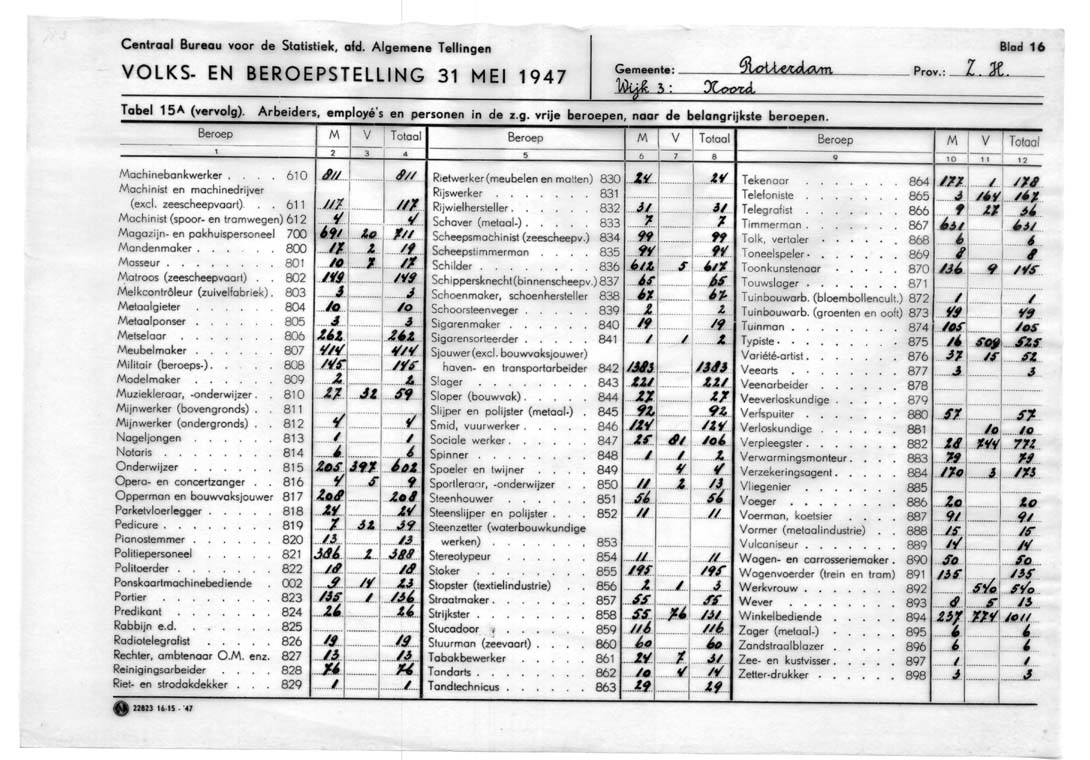 Centraal Bureau voor de Statistiek, afd. Algemene Tellingen
Blad 16
VOLKS- EN BEROEPSTELLING 31 MEI 1947
Gemeente: Rotterdam Prov.: Z. H.
Wijk 3: Noord
Tabel 15A (vervolg). Arbeiders, employé's en personen in de z.g. vrije beroepen, naar de belangrijkste beroepen.
Beroep M V Totaal
1 2 3 4
Machinebankwerker 610 811 811
Machinist en machinedrijver
(excl. zeescheepvaart) 611 117 117
Machinist (spoor- en tramwegen) 612 4 4
Magazijn- en pakhuispersoneel 700 691 20 711
Mandenmaker 800 17 2 19
Masseur 801 10 7 17
Matroos (zeescheepvaart) 802 149 149
Melkcontrôleur (zuivelfabriek) 803 3 3
Metaalgieter 804 10 10
Metaalponser 805 3 3
Metselaar 806 262 262
Meubelmaker 807 414 414
Militair (beroeps-) 808 145 145
Modelmaker 809 2 2
Muziekleraar, -onderwijzer 810 27 32 59
Mijnwerker (bovengronds) 811
Mijnwerker (ondergronds) 812 4 4
Nageljongen 813 1 1
Notaris 814 6 6
Onderwijzer 815 205 397 602
Opera- en concertzanger 816 4 5 9
Opperman en bouwvaksjouwer 817 208 208
Parketvloerlegger 818 24 24
Pedicure 819 7 32 39
Pianostemmer 820 13 13
Politiepersoneel 821 386 2 388
Politoerder 822 18 18
Ponskaartmachinebediende 002 9 14 23
Portier 823 135 1 136
Predikant 824 26 26
Rabbijn e.d. 825
Radiotelegrafist 826 19 19
Rechter, ambtenaar O.M. enz. 827 13 13
Reinigingsarbeider 828 76 76
Riet- en strodakdekker 829 1 1
Beroep M V Totaal
5 6 7 8
Rietwerker (meubelen en matten) 830 24 24
Rijswerker 831
Rijwielhersteller 832 31 31
Schaver (metaal-) 833 7 7
Scheepsmachinist (zeescheepv.) 834 99 99
Scheepstimmerman 835 94 94
Schilder 836 612 5 617
Schippersknecht (binnenscheepv.) 837 65 65
Schoenmaker, schoenhersteller 838 67 67
Schoorsteenveger 839 2 2
Sigarenmaker 840 19 19
Sigarensorteerder 841 1 1 2
Sjouwer (excl. bouwvaksjouwer)
haven- en transportarbeider 842 1383 1383
Slager 843 221 221
Sloper (bouwvak) 844 27 27
Slijper en polijster (metaal-) 845 92 92
Smid, vuurwerker 846 124 124
Sociale werker 847 25 81 106
Spinner 848 1 1 2
Spoeler en twijner 849 4 4
Sportleraar, -onderwijzer 850 11 2 13
Steenhouwer 851 56 56
Steenslijper en polijster 852 11 11
Steenzetter (waterbouwkundige
werken) 853
Stereotypeur 854 11 11
Stoker 855 195 195
Stopster (textielindustrie) 856 2 1 3
Straatmaker 857 55 55
Strijkster 858 55 76 131
Stucadoor 859 116 116
Stuurman (zeevaart) 860 60 60
Tabakbewerker 861 24 7 31
Tandarts 862 10 4 14
Tandtechnicus 863 29 29
Beroep M V Totaal
9 10 11 12
Tekenaar 864 177 1 178
Telefoniste 865 3 164 167
Telegrafist 866 9 27 36
Timmerman 867 631 631
Tolk, vertaler 868 6 6
Toneelspeler 869 8 8
Toonkunstenaar 870 136 9 145
Touwslager 871
Tuinbouwarb. (bloembollencult.) 872 1 1
Tuinbouwarb. (groenten en ooft) 873 49 49
Tuinman 874 105 105
Typiste 875 16 509 525
Variété-artist 876 37 15 52
Veearts 877 3 3
Veenarbeider 878
Veeverloskundige 879
Verfspuiter 880 57 57
Verloskundige 881 10 10
Verpleegster 882 28 744 772
Verwarmingsmonteur 883 79 79
Verzekeringsagent 884 170 3 173
Vliegenier 885
Voeger 886 20 20
Voerman, koetsier 887 91 91
Vormer (metaalindustrie) 888 15 15
Vulcaniseur 889 14 14
Wagen- en carrosseriemaker 890 50 50
Wagenvoerder (trein en tram) 891 135 135
Werkvrouw 892 540 540
Wever 893 8 5 13
Winkelbediende 894 237 774 1011
Zager (metaal-) 895 6 6
Zandstraalblazer 896 6 6
Zee- en kustvisser 897 1 1
Zetter-drukker 898 3 3
22823 16-15 - '47